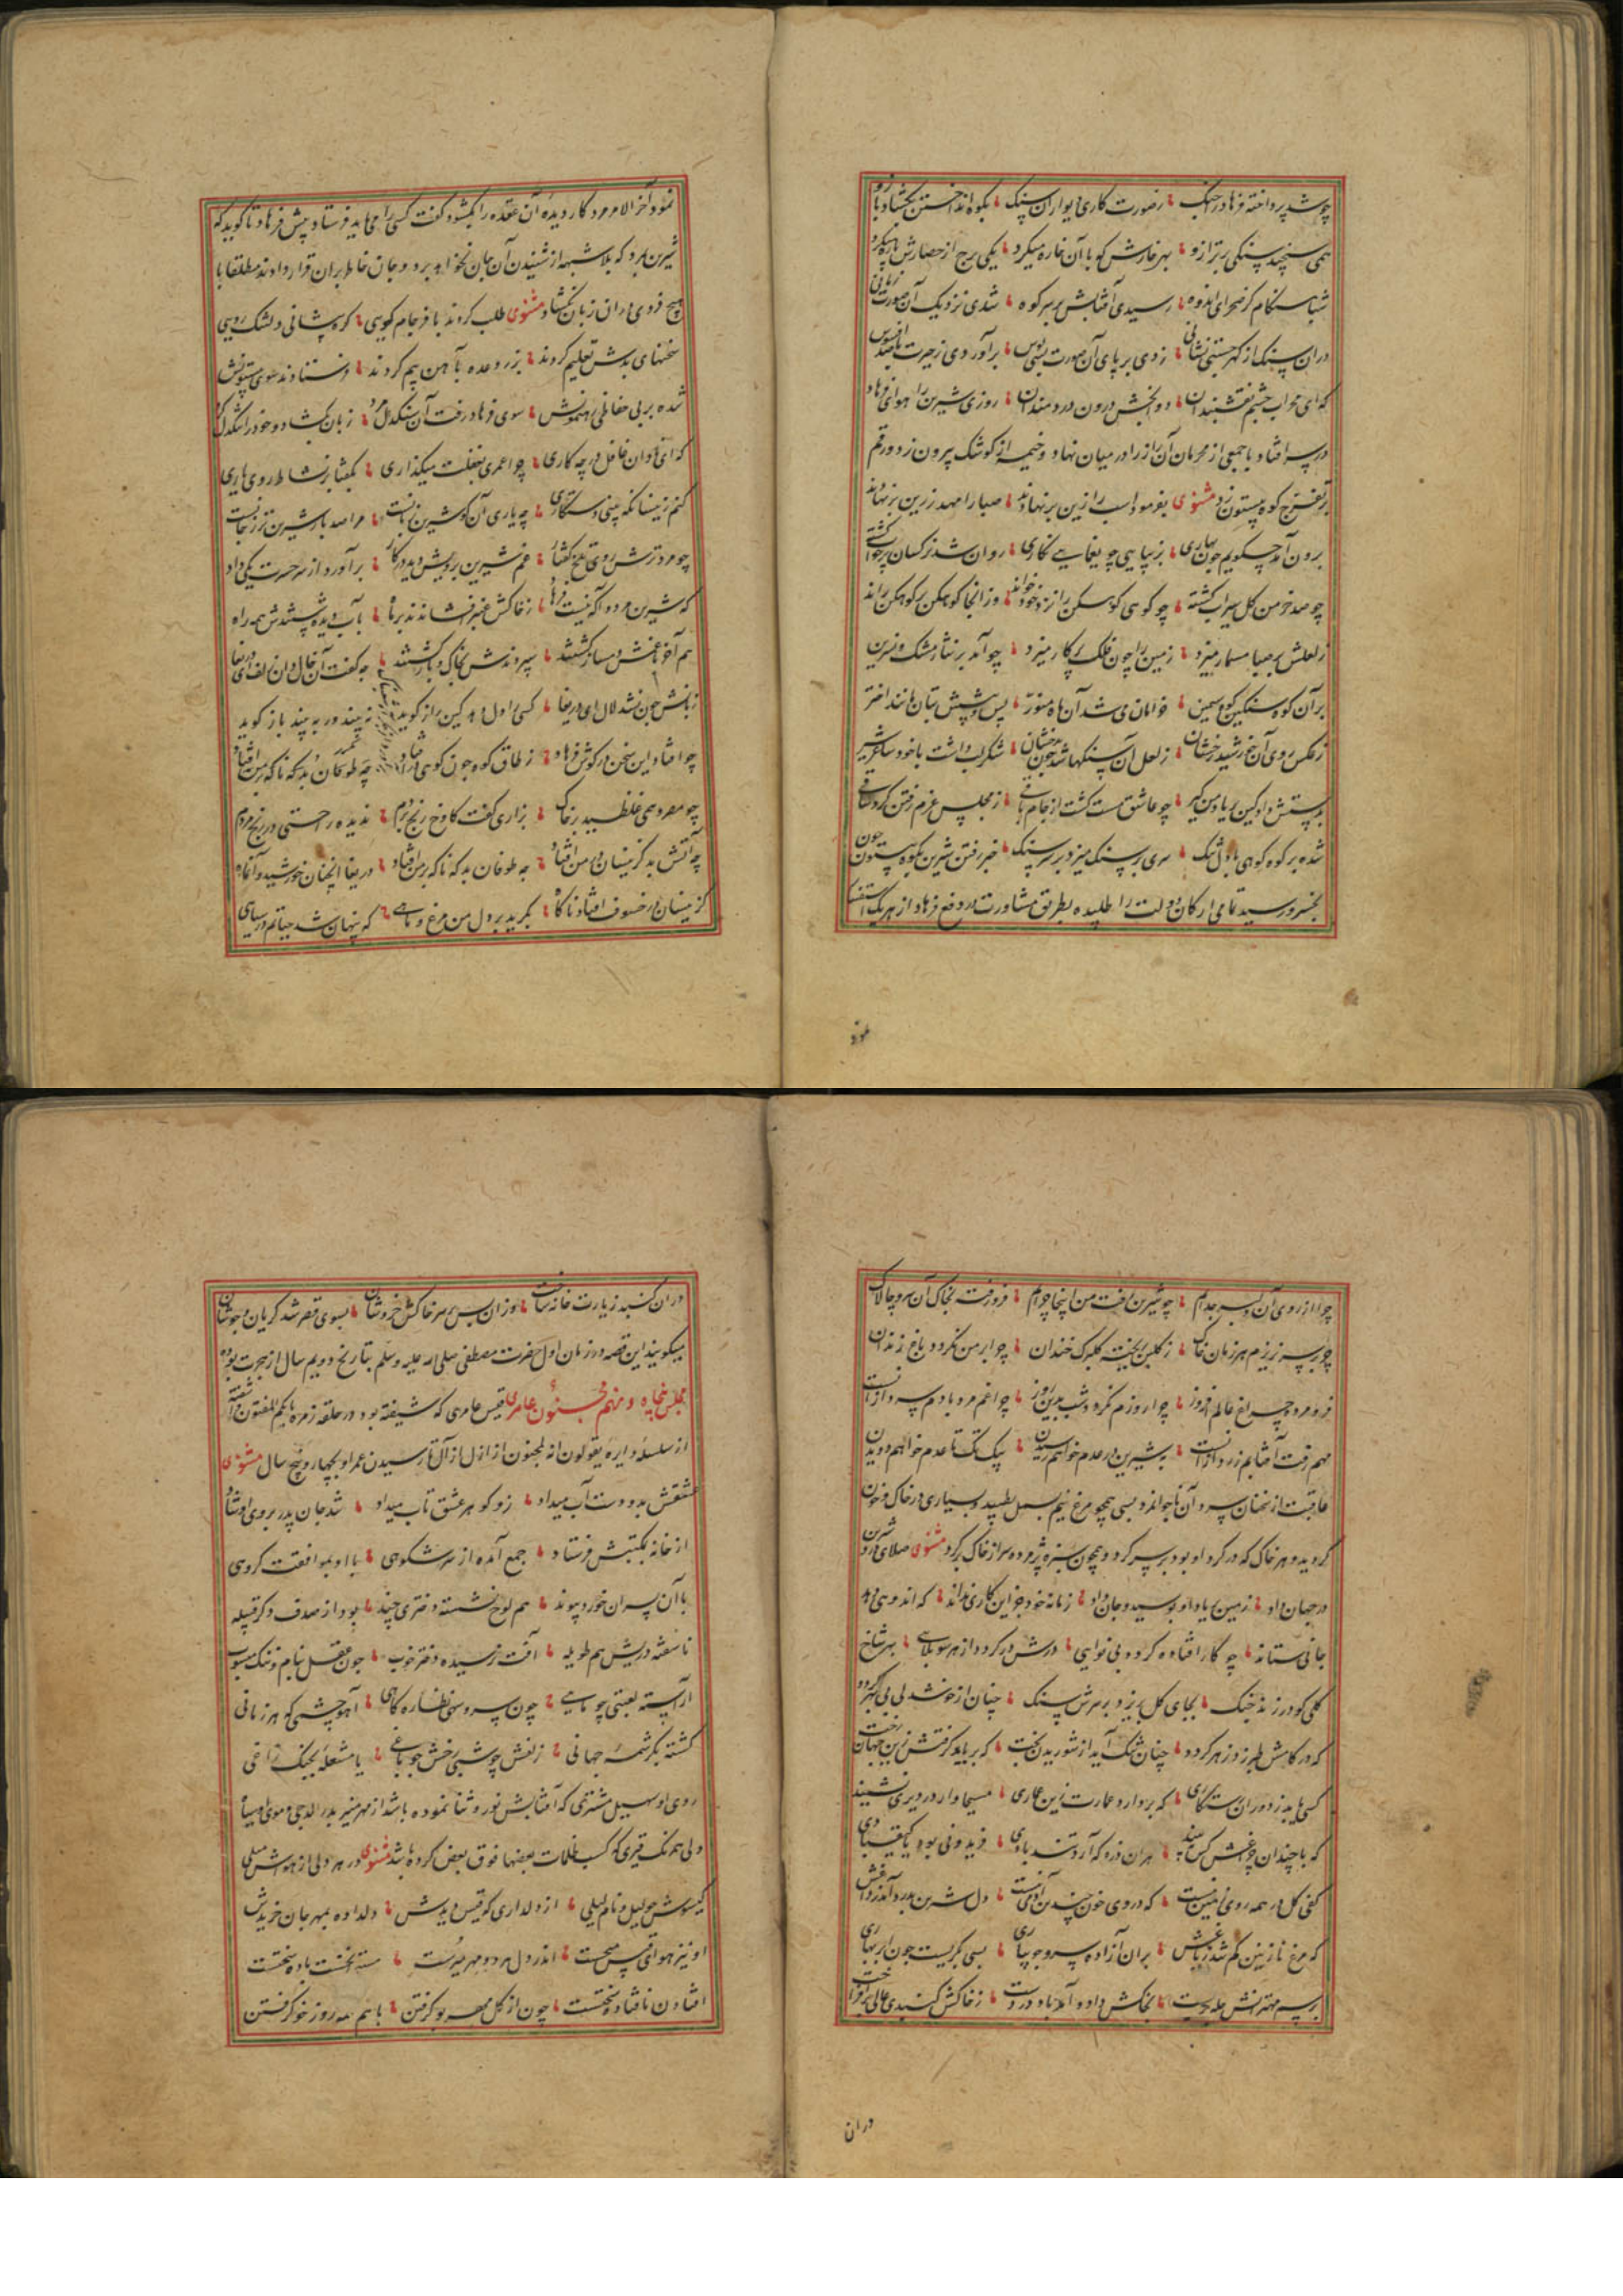 چو شد پرداخته فرهاد را چنگ ؛ ز صورت کاری دیوار آن سنگ ؛ بکوه انداختن بکشاد بازو
همی سنجید سنگی بر ترازو ؛ بهر خارش که با آن خاره میکرد ؛ یکی برج از حصارش پاره میکرد
شباهنگام کز صحرای اندوه ؛ رسیدی آفتابش بر سر کوه ؛ شدی نزدیک آن صورت زمانی
در آن سنگ از گهر جستی نشانی ؛ زدی بر پای آن صورت بسی بوس ؛ برآوردی ز حیرت
که ای محراب چشم نقشبندان ؛ دوا بخش درون دردمندان ؛ روزی شیرین را هوای فرهاد
در سر افتاد با جمعی از محرمان آن راز را در میان نهاد و خیمه از کوشک بیرون زد و رقم
تفرج کوه بیستون زد مثنوی بفرمود اسب را زین بر نهادند ؛ صبا را مهد زرین بر نهادند
برون آمد چگویم چون بهاری ؛ بزیبایی چو یغمایی نگاری ؛ روان شد نرکسان پر خواب گشته
چو صد خرمن گل سیراب گشته ؛ چو کوهی کوهکن را نزد خود خواند ؛ وز آنجا کوهکن بر کوهکن راند
ز لعلش بر صبا مسمار میزد ؛ زمین را چون فلک پرکار میزد ؛ چو آمد بر نثار مشک و نسرین
بر آن کوه سنگین کوه سیمین ؛ خرامان می شد آن ماه منور ؛ پس و پیشش بتان مانند اختر
ز عکس روی آن خورشید رخشان ؛ ز لعل آن سنگها شد چون بدخشان ؛ شکر لب داشت با خود ساغر شیر
بدستش داد کین بر یاد من گیر ؛ چو عاشق مست گشت از جام باقی ؛ ز مجلس عزم رفتن کرد ساقی
شده بر کوه کوهی بر دل تنگ ؛ سری بر سنگ میزد بر سر سنگ ؛ خبر رفتن شیرین بکوه بیستون چون
بخسرو رسید تمامی ارکان دولت را طلبیده بطریق مشاورت در دفع فرهاد از هر یک استفسار
نمود
نمود آخر الامر مرد کار دیده آن عقده را بکشود گفت کسی را می باید فرستاد پیش فرهاد تا گوید که
شیرین بمرد که بلا شبهه از شنیدن آن جان نخواهد برد و جان خاطر بر آن قرار دادند مطلقا با
هیچ فردی در آن زبان نکشاد مثنوی طلب کردند نافرجام گویی ؛ گره پیشانی و لشک رویی
سخنهای بدش تعلیم کردند ؛ بزر وعده بآهن بیم کردند ؛ فرستادند سوی بیستونش
شده بر بی حفاظی رهنمونش ؛ سوی فرهاد رفت آن سنگدل مرد ؛ زبان بکشاد و خود را سنگدل کرد
که ای نادان غافل در چه کاری ؛ چرا عمری بغفلت میگذاری ؛ بگفتا بر نشاط روی یاری
کنم زینسان که بینی دستکاری ؛ چه یاری آنکه او شیرین زبانست ؛ مرا صد بار شیرین تر ز جانست
چو مرد ترش روی تلخ گفتار ؛ غم شیرین برویش دید در کار ؛ برآورد از سر حسرت یکی داد
که شیرین مرد و آگه نیست فرهاد ؛ ز خاکش عنبر افشاندند بر ماه ؛ بآب دیده شستندش همه راه
هم آخر با غمش دمساز گشتند ؛ سپردندش بخاک و باز گشتند ؛ چه گفت آن خال و آن زلف ای دریغا
زبانش چون نشد لال ای دریغا ؛ کسی را دل دهد کین راز گوید ؛ نه بیند ور به بیند باز گوید
چو افتاد این سخن در گوش فرهاد ؛ ز طاق کوه چون کوهی در افتاد ؛ چه طوفان بد که ناگه بر من افتاد
چو مصروعی همی غلطید بر خاک ؛ بزاری گفت کاوخ رنج بردم ؛ ندیده راحتی در رنج مردم
چه آتش بد کزینسان در من افتاد ؛ چه طوفان بد که ناگه بر من افتاد ؛ دریغا آنچنان خورشید و آن ماه
کزینسان در خسوف افتاد ناگاه ؛ بگرید بر دل من مرغ و ماهی ؛ که پنهان شد حیاتم در سیاهی
چرا از روی آن دلبر جدایم ؛ چو شیرین رفت من اینجا چرایم ؛ فرو رفت بخاک آن سرو چالاک
چرا بر سر نریزم هر زمان خاک ؛ ز گلبن ریخته گلبرگ خندان ؛ چرا بر من نگردد باغ زندان
فرو مرد چراغ عالم افروز ؛ چرا روزم نگردد شب بدین روز ؛ چراغم مرد بادم سرد از آنست
مهم رفت آفتابم زرد از آنست ؛ بشیرین در عدم خواهم رسیدن ؛ بیک تک تا عدم خواهم دویدن
عاقبت از سخنان سرد آن ناجوانمرد بسی همچو مرغ نیم بسمل طپید و بسیاری در خاک و خون
گردید و هر خاک که در گرد او بود بر سر کرد و همچون سبزه پژمرده سر از خاک بر کرد مثنوی صلای درد شیرین
در جهان داد ؛ زمین بر یاد او بوسید و جان داد ؛ زمانه خود جز این کاری نداند ؛ که اندوهی دهد
جانی ستاند ؛ چو کار افتاده گردد بی نوایی ؛ درش در گیرد از هر سو بلایی ؛ بهر شاخ
گلی کو در زند چنگ ؛ بجای گل بریزد بر سرش سنگ ؛ چنان از خوشدلی بی بهره گردد
که در کامش طبرزد زهر گردد ؛ چنان تنگ آید از شوریدن بخت ؛ که برباید گرفتش زین جهان رخت
کسی یابد ز دوران رستگاری ؛ که بردارد عمارت زین عماری ؛ مسیحاوار در دیری نشیند
که با چندان چراغش کس نبیند ؛ هر آن ذره که آرد تند بادی ؛ فریدونی بود یا کیقبادی
کفی گل در همه روی زمین نیست ؛ که در وی خون چندین آدمی نیست ؛ دل شیرین بدرد آمد ز داغش
که مرغ نازنین گم شد ز باغش ؛ بر آن آزاده سرو جویباری ؛ بسی بگریست چون ابر بهاری
برسم مهترانش حله بربست ؛ بخاکش داد و آمد باد در دست ؛ ز خاکش گنبدی عالی برافراخت
در آن
در آن گنبد زیارت خانه ساخت ؛ وز آن پس بر سر خاکش خروشان ؛ بسوی قصر شد گریان و جوشان
میگویند این قصه در زمان اول حضرت مصطفی صلی الله علیه وسلم بتاریخ دویم سال از هجرت بوده
مجلس پنجاه و نهم مجنون عامری قیس عامری که شیفته بود در حلقه زمره بایکم المفتون و آشفته
از سلسله دایره یقولون انه لمجنون از ازل از آل تا رسیدن عمر او بچهار و پنج سال مثنوی
عشقش بدو دست آب میداد ؛ زو گوهر عشق تاب میداد ؛ شد جان پدر بروی او شاد
از خانه بمکتبش فرستاد ؛ جمع آمده از سر شکوهی ؛ با او بموافقت گروهی
با آن پسران خورد پیوند ؛ هم لوح نشسته دختری چند ؛ بود از صدف دگر قبیله
ناسفته دریش هم طویله ؛ آفت نرسیده دختر خوب ؛ چون عقل بنام نیک منسوب
آراسته لعبتی چو ماهی ؛ چون سرو سهی نظاره گاهی ؛ آهو چشمی که هر زمانی
کشته بکرشمه جهانی ؛ زلفش چو شبی رخش چو باغی ؛ یا مشعله بچنگ زاغی
روی او سهیل مشتری که آفتابش نور و ثنا نموده باشد از مهر منیر بدر الدجی و موی او سیاه
ولی همرنگ قیری که کسب ظلمات بعضها فوق بعض کرده باشد مثنوی در هر دلی از هواش میلی
گیسوش چو لیل و نام لیلی ؛ از دلداری که قیس دیدش ؛ دلداده بمهر جان خریدش
او نیز هوای قیس میجست ؛ اندر دل هر دو مهر میرست ؛ مستند نخست باده سخت
افتادن نافتاده سختست ؛ چون از گل مهر بو گرفتن ؛ با هم همه روز خو گرفتن